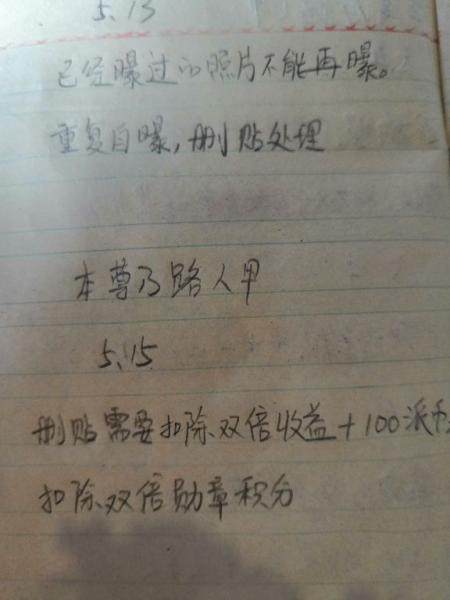 5.13
已经曝过的照片不能再曝。
重复自曝,删贴处理
本尊乃路人甲
5.15
删贴需要扣除双倍收益+100派币,
扣除双倍勋章积分